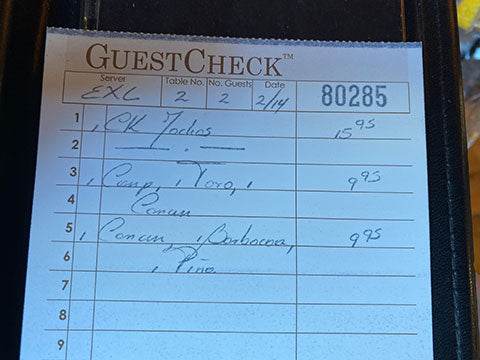 GUESTCHECK™
Server Table No. No. Guests Date
EXL 2 2 2/14 80285
1 CK Nachos 15 95
2
3 Camp, Toro, 9 95
4 Cancun
5 Cancun, Barbacoa, 9 95
6 Pina
7
8
9